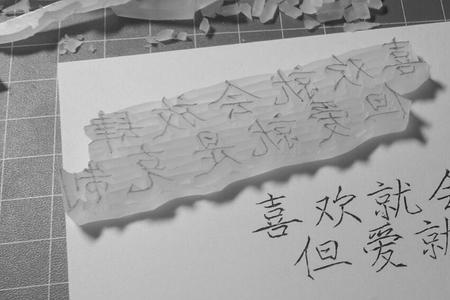 喜欢就会放肆
但爱就是克制
喜欢就会
但爱就